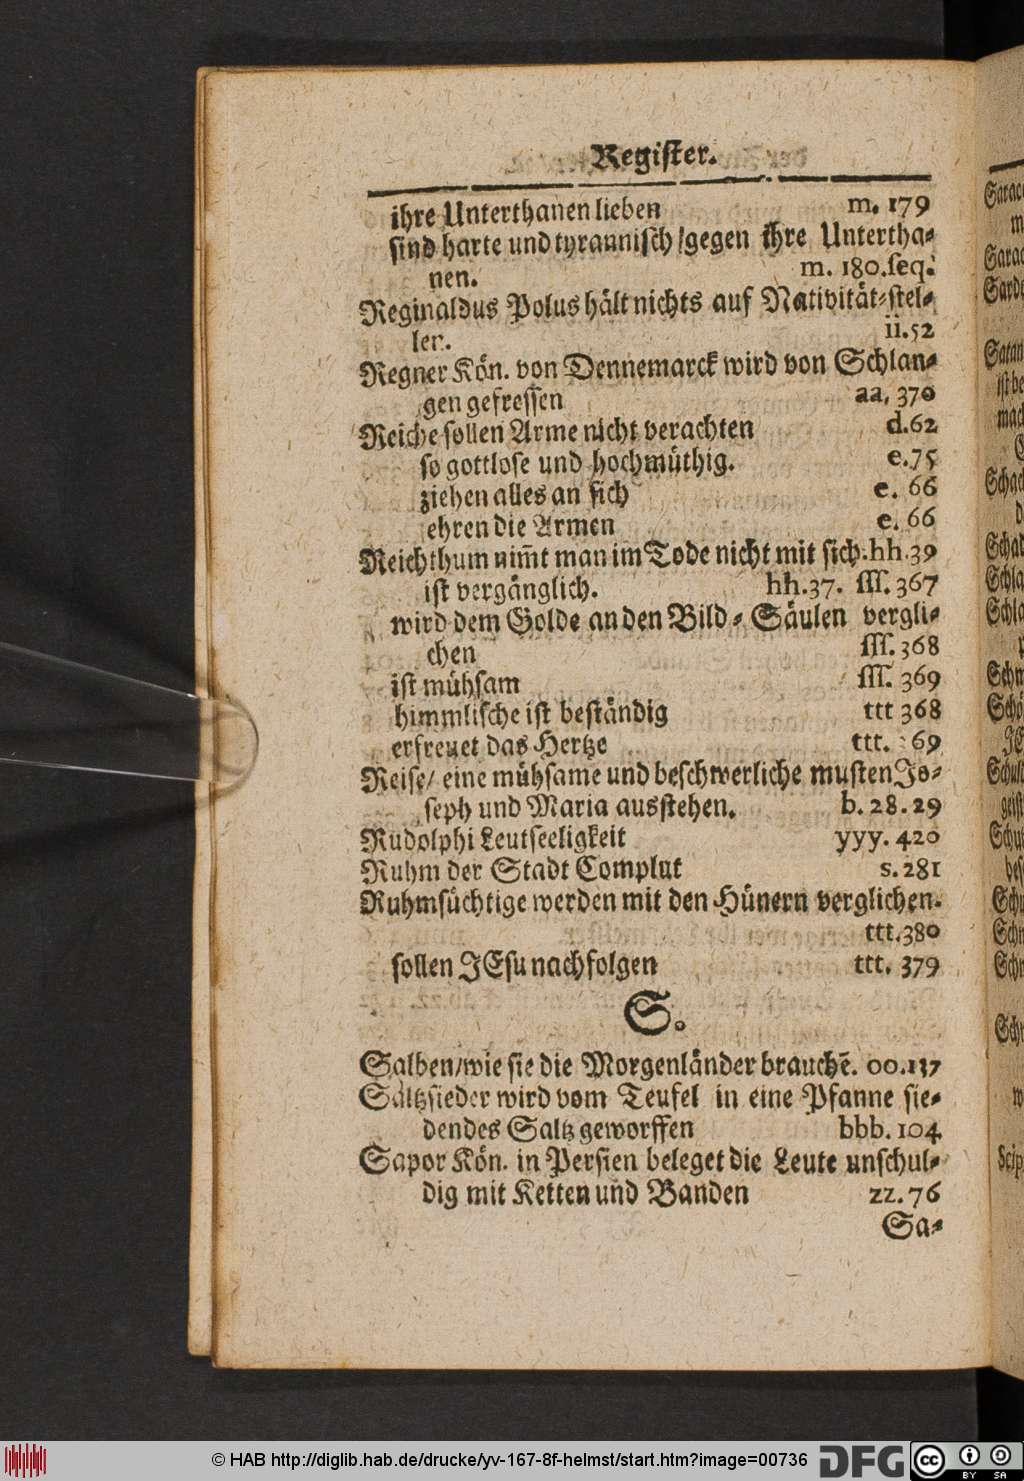 Register.
ihre Unterthanen lieben m. 179
sind harte und tyrannisch / gegen ihre Untertha-
nen. m. 180. seq.
Reginaldus Polus hält nichts auf Nativität-stel-
ler. ii. 52
Regner Kön. von Dennemarck wird von Schlan-
gen gefressen aa, 370
Reiche sollen Arme nicht verachten d. 62
so gottlose und hochmüthig. e. 75
ziehen alles an sich e. 66
ehren die Armen e. 66
Reichthum nim̄t man im Tode nicht mit sich. hh. 39
ist vergänglich. hh. 37. sss. 367
wird dem Golde an den Bild-Säulen vergli-
chen sss. 368
ist mühsam sss. 369
himmlische ist beständig ttt 368
erfreuet das Hertze ttt. 69
Reise / eine mühsame und beschwerliche musten Jo-
seph und Maria ausstehen. b. 28. 29
Rudolphi Leutseeligkeit yyy. 420
Ruhm der Stadt Complut s. 281
Ruhmsüchtige werden mit den Hünern verglichen.
ttt. 380
sollen JEsu nachfolgen ttt. 379
S.
Salben / wie sie die Morgenländer brauchē. oo. 137
Saltzsieder wird vom Teufel in eine Pfanne sie-
dendes Saltz geworffen bbb. 104
Sapor Kön. in Persien beleget die Leute unschul-
dig mit Ketten und Banden zz. 76
Sa-
© HAB http://diglib.hab.de/drucke/yv-167-8f-helmst/start.htm?image=00736
DFG
cc BY SA